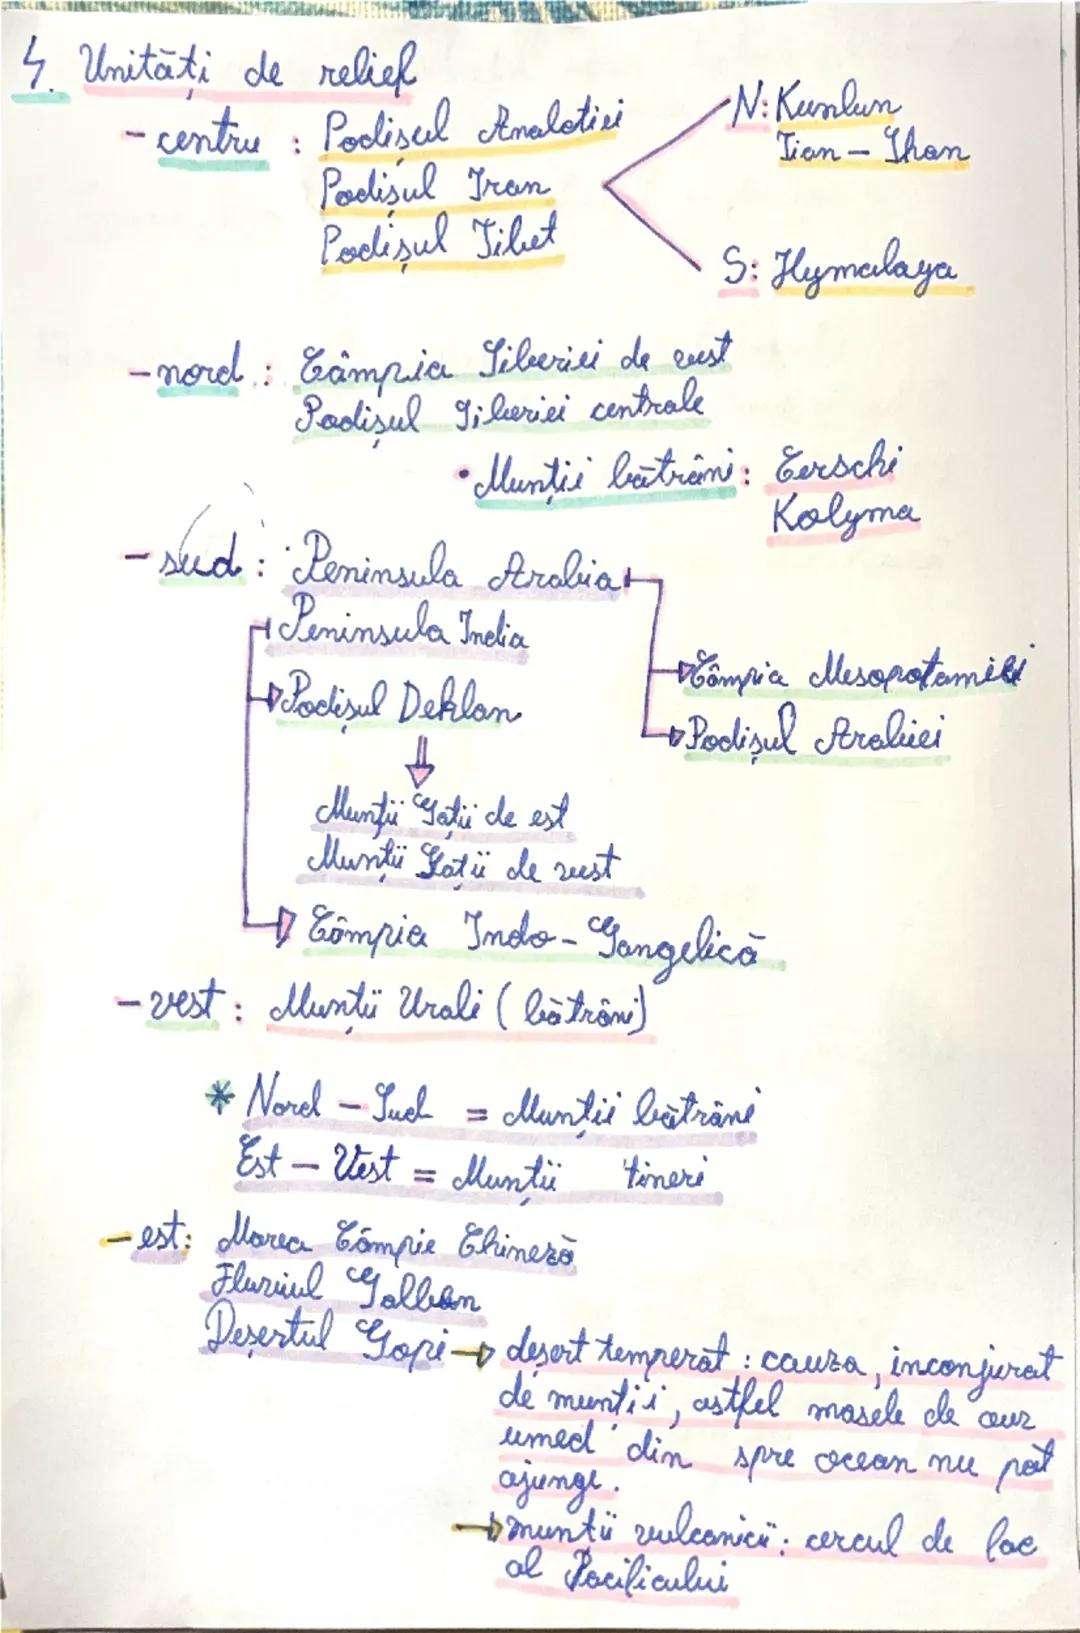 4. Unități de relief
- centru : Podișul Analotiei
Podișul Iran
Podișul Tibet
N: Kunlun
Tian - Shan
S: Hymalaya
- nord : Câmpia Siberiei de vest
Podișul Siberiei centrale
• Munții bătrâni: Cerschi
Kolyma
- sud : Peninsula Arabia
Peninsula India
Podișul Dekkan
Câmpia Mesopotamiei
Podișul Arabiei
Munții Gații de est
Munții Gații de vest
Câmpia Indo - Gangelică
- vest : Munții Urali ( bătrâni)
* Nord - Sud = Munții bătrâni
Est - Vest = Munții tineri
- est: Marea Câmpie Chineză
Fluviul Galben
Deșertul Gopi → deșert temperat : cauza, inconjurat
de munții, astfel masele de aer
umed din spre ocean nu pot
ajunge.
→ munții vulcanici: cercul de foc
al Pacificului